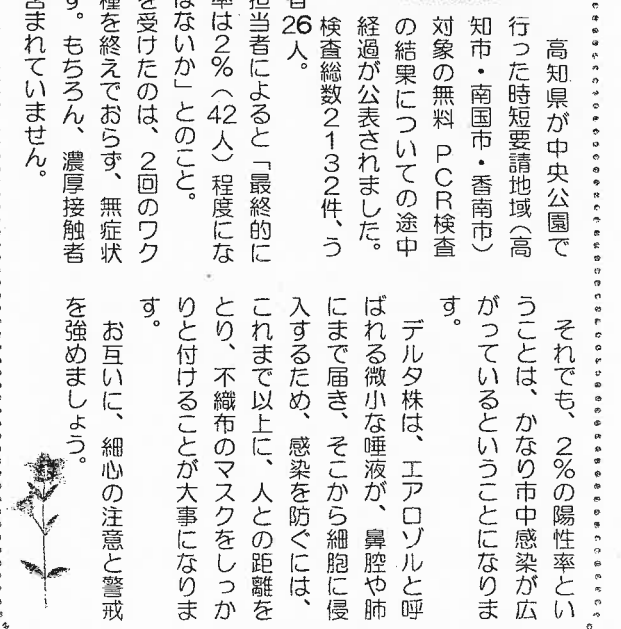 高知県が中央公園で
行った時短要請地域（高
知市・南国市・香南市）
対象の無料 PCR検査
の結果についての途中
経過が公表されました。
検査総数2132件、う
者26人。
担当者によると「最終的に
率は2%（42人）程度にな
はないか」とのこと。
を受けたのは、2回のワク
種を終えでおらず、無症状
す。もちろん、濃厚接触者
含まれていません。
それでも、2%の陽性率とい
うことは、かなり市中感染が広
がっているということになりま
す。
デルタ株は、エアロゾルと呼
ばれる微小な唾液が、鼻腔や肺
にまで届き、そこから細胞に侵
入するため、感染を防ぐには、
これまで以上に、人との距離を
とり、不織布のマスクをしっか
りと付けることが大事になりま
す。
お互いに、細心の注意と警戒
を強めましょう。